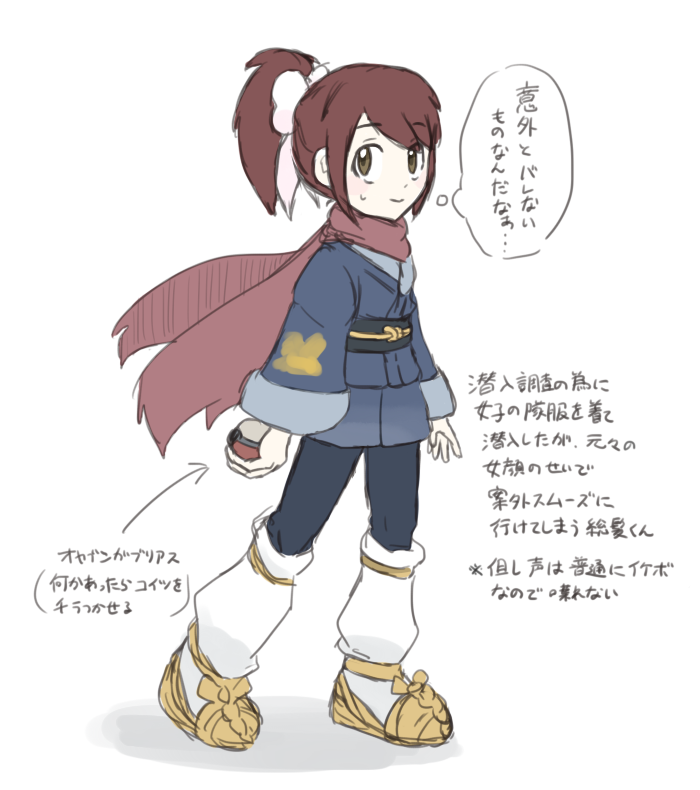 意外とバレない
ものなんだなぁ…
潜入調査の為に
女子の隊服を着て
潜入したが、元々の
女顔のせいで
案外スムーズに
行けてしまう総髪くん
※但し声は普通にイケボ
なので喋れない
オヤブンガブリアス
(何かあったらコイツを
チラつかせる)